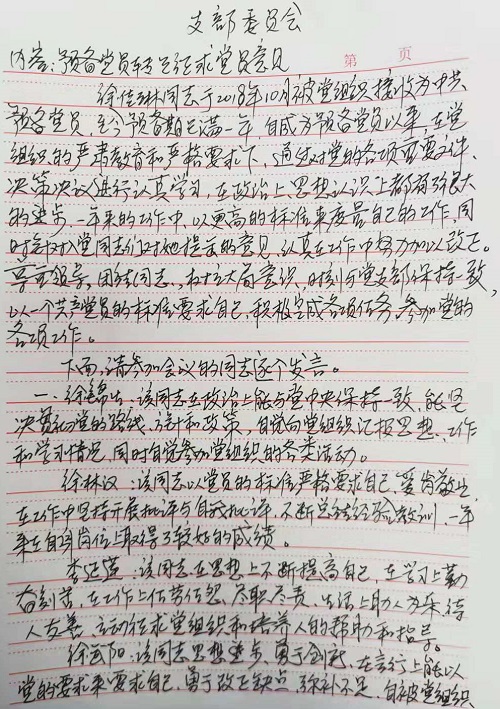 支部委员会
第 页
内容:预备党员转正征求党员意见
徐佳琳同志于2018年10月被党组织接收为中共
预备党员,至今预备期已满一年,自成为预备党员以来,在党
组织的严肃教育和严格要求下,通过对党的各项重要文件、
决策决议进行认真学习,在政治上、思想认识上都有很大
的进步。一年来的工作中,以更高的标准来度量自己的工作,同
时针对入党同志们对她提出的意见,认真在工作中努力加以改正。
尊重领导,团结同志,树立大局意识,时刻与党支部保持一致,
以一个共产党员的标准要求自己,积极完成各项任务,参加党的
各项工作。
下面,请参加会议的同志逐个发言。
一、徐锦出:该同志在政治上能与党中央保持一致,能坚
决执行党的路线、方针和政策,自觉向党组织汇报思想、工作
和学习情况,同时自觉参加党组织的各类活动。
徐林汉:该同志以党员的标准严格要求自己,爱岗敬业,
在工作中坚持开展批评与自我批评,不断总结经验教训,一年
来在自身岗位上取得了较好的成绩。
李运莲:该同志在思想上不断提高自己,在学习上勤
奋刻苦,在工作上任劳任怨,尽职尽责,生活上助人为乐,待
人友善,主动征求党组织和培养人的帮助和指导。
徐武阳:该同志思想进步,勇于创新,在言行上能以
党的要求来要求自己,勇于改正缺点,弥补不足,自被党组织